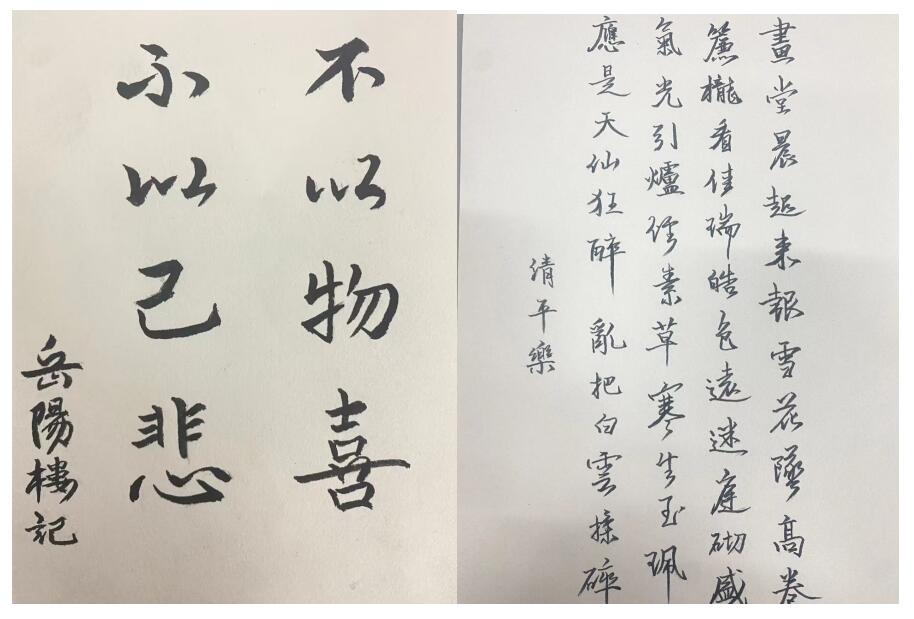 不以物喜
不以己悲
岳陽樓記
畫堂晨起来報雪花墜高卷
簾櫳看佳瑞皓色遠迷庭砌盛
氣光引爐煙素草寒生玉珮
應是天仙狂醉亂把白雲揉碎
清平樂